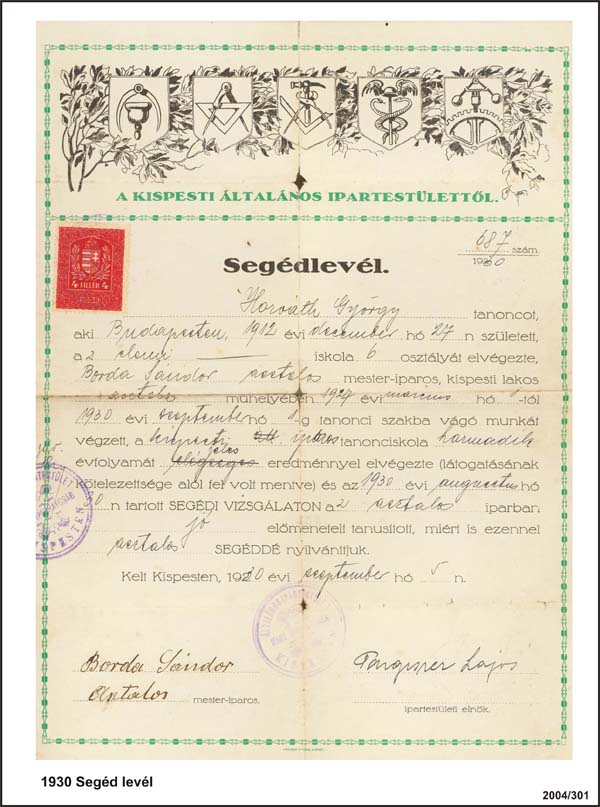 A KISPESTI ÁLTALÁNOS IPARTESTÜLETTŐL.
687 szám.
1930
Segédlevél.
4 FILLÉR 4
Horváth György tanoncot,
aki Budapesten, 1912 évi december hó 27-n született,
a 2 elemi iskola 6 osztályát elvégezte,
Borda Sándor asztalos mester-iparos, kispesti lakos
asztalos műhelyében 1927 évi március hó 1-től
1930 évi szeptember hó 1-ig tanonci szakba vágó munkát
végzett, a kispesti iparos tanonciskola harmadik
évfolyamát jeles elégséges eredménnyel elvégezte (látogatásának
kötelezettsége alól fel volt mentve) és az 1930 évi augusztus hó
30-n tartott SEGÉDI VIZSGÁLATON a 2 asztalos iparban
jó előmenetelt tanusított, miért is ezennel
asztalos SEGÉDDÉ nyilvánítjuk.
Kelt Kispesten, 1930 évi szeptember hó 5-n.
KISPESTEN
KISPESTEN
Borda Sándor
asztalos mester-iparos.
Lajos
ipartestületi elnök.
1930 Segéd levél
2004/301